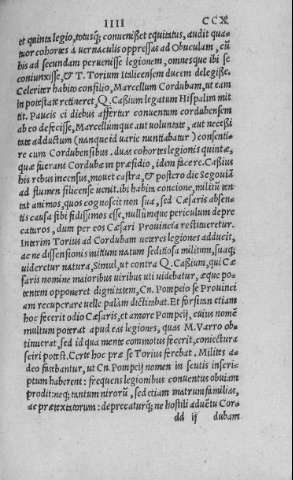 IIII CCX
et quinta legio, totusq; conuenisset equitatus, audit qua-
tuor cohortes à uernaculis oppressas ad Obuculam, cũ
his ad secundam peruenisse legionem, omnesque ibi se
coniunxisse, & T. Torium Italicensem ducem delegisse.
Celeriter habito consilio, Marcellum Cordubam, ut eam
in potestate retineret, Q. Caßium legatum Hispalim mit-
tit. Paucis ei diebus affertur conuentum cordubensem
ab eo defecisse, Marcellumque aut uoluntate, aut necessi-
tate adductum (nanque id uarie nuntiabatur) consenti-
re cum Cordubensibus. duas cohortes legionis quintæ,
quæ fuerant Cordubæ in præsidio, idem facere. Caßius
his rebus incensus, mouet castra, & postero die Segouiã
ad flumen silicense uenit. ibi habita concione, militũ ten-
tat animos, quos cognoscit non sua, sed Cæsaris absen-
tis causa sibi fidissimos esse, nullumque periculum depre
caturos, dum per eos Cæsari Prouincia restitueretur.
Interim Torius ad Cordubam ueteres legiones adducit,
ac ne dissensionis initium natum seditiosa militum, suaq;
uideretur natura, Simul, ut contra Q. Caßium, qui Cæ
saris nomine maioribus uiribus uti uidebatur, æque po-
tentem opponeret dignitatem, Cn. Pompeio se Prouinci
am recuperare uelle palàm dictitabat. Et forsitan etiam
hoc fecerit odio Cæsaris, et amore Pompeij, cuius nomẽ
multum poterat apud eas legiones, quas M. Varro obti
nuerat, sed id qua mente commotus fecerit, coniectura
sciri potest. Certè hoc præ se Torius ferebat. Milites a-
deo fatebantur, ut Cn. Pompeij nomen in scutis inscri-
ptum haberent: frequens legionibus conuentus obuiam
prodit: neq; tantum uirorũ, sed etiam matrumfamilias,
ac prætextatorum: deprecaturq; ne hostili aduẽtu Cor-
dd ij dubam